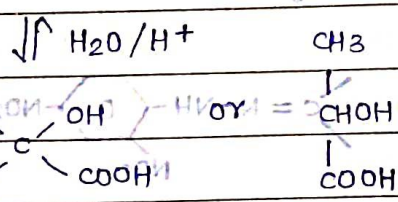 H2O/H+ CH3
OH or CHOH
C
COOH COOH